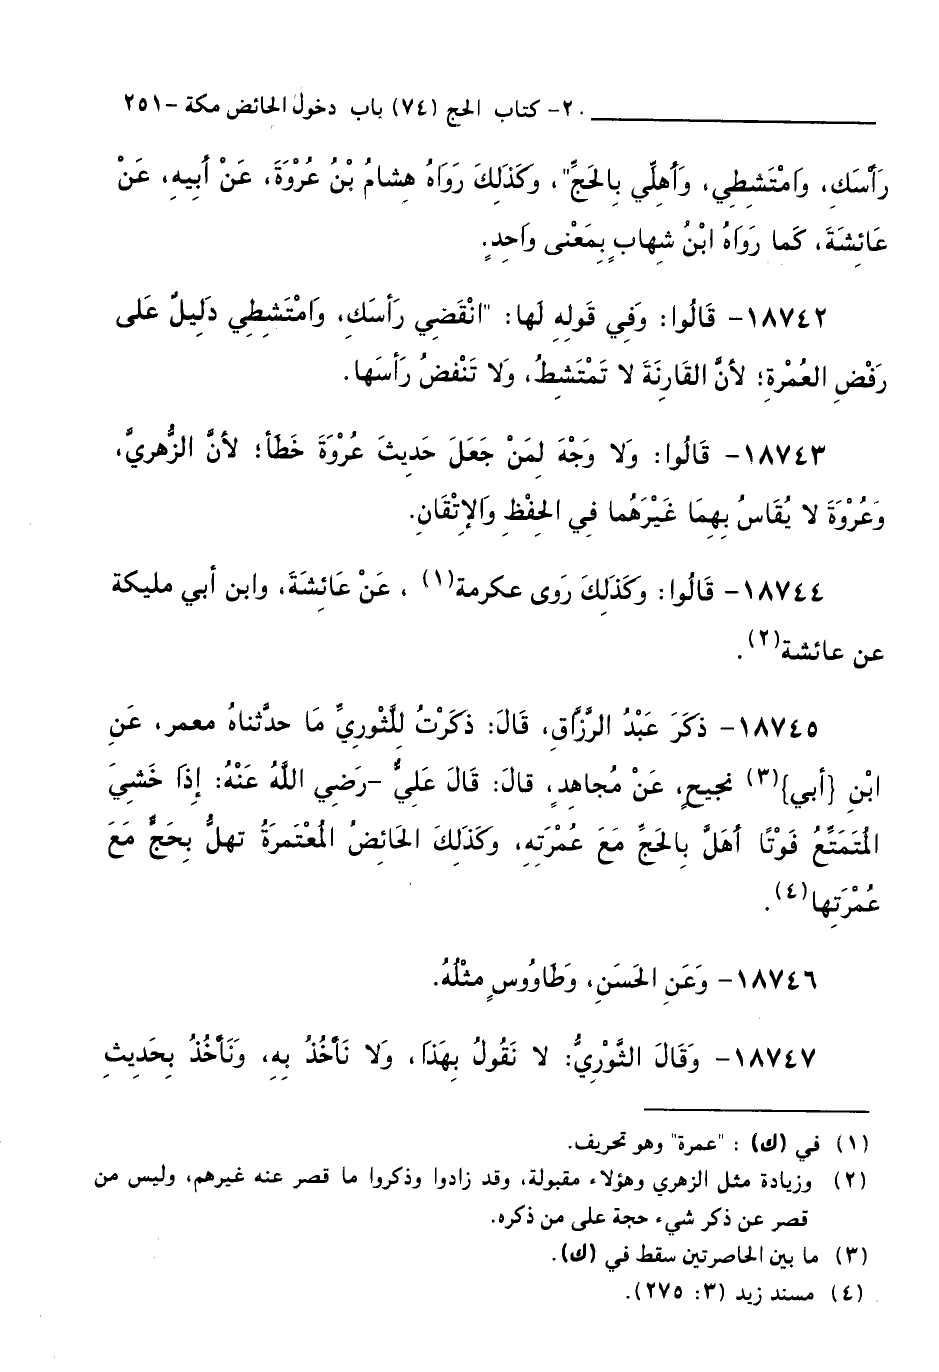 ٢٠- كتاب الحج (٧٤) باب دخول الحائض مكة -٢٥١
رَأْسَكِ، وَامْتَشِطِي، وَأَهِلِّي بِالحَجِّ"، وَكَذَلِكَ رَوَاهُ هِشامُ بْنُ عُرْوَةَ، عَنْ أَبِيهِ، عَنْ
عَائِشَةَ، كَما رَوَاهُ ابْنُ شِهابٍ بِمَعْنى وَاحِدٍ.
١٨٧٤٢- قَالُوا: وَفِي قَولِهِ لَها: "انْقَضِي رَأْسَكِ، وَامْتَشِطِي دَلِيلٌ عَلى
رَفْضِ العُمْرةِ؛ لأنَّ القَارِنَةَ لا تَمْتَشِطُ، وَلا تَنْفضُ رَأسَها.
١٨٧٤٣- قَالُوا: وَلا وَجْهَ لِمَنْ جَعَلَ حَدِيثَ عُرْوَةَ خَطَأ؛ لأنَّ الزُّهريَّ،
وَعُرْوَةَ لا يُقَاسُ بِهِمَا غَيْرَهُما فِي الحِفْظِ وَالإِتْقَانِ.
١٨٧٤٤- قَالُوا: وَكَذَلِكَ رَوى عكرمة(١) ، عَنْ عَائِشَةَ، وابن أبي مليكة
عن عائشة(٢).
١٨٧٤٥- ذكَرَ عَبْدُ الرَّزَّاقِ، قَالَ: ذكَرْتُ لِلثَّوريِّ مَا حدَّثناهُ معمر، عَنِ
ابْنِ {أبي}(٣) نجيحٍ، عَنْ مُجاهِدٍ، قالَ: قَالَ عَلِيٌّ -رَضِي اللَّهُ عَنْهُ: إِذَا خَشِيَ
المُتَمَتِّعُ فَوْتًا أهَلَّ بِالحَجِّ مَعَ عُمْرَتِهِ، وَكَذَلِكَ الحَائضُ المُعْتَمرَةُ تهلُّ بِحَجٍّ مَعَ
عُمْرَتِها(٤).
١٨٧٤٦- وَعَنِ الحَسَنِ، وَطَاوُوسٍ مثْلُهُ.
١٨٧٤٧- وَقَالَ الثَّوْرِيُّ: لا نَقُولُ بِهَذَا، وَلا نَأخُذُ بِهِ، وَنَأخُذُ بِحَدِيثِ
(١) في (ك) : "عمرة" وهو تحريف.
(٢) وزيادة مثل الزهري وهؤلاء مقبولة، وقد زادوا وذكروا ما قصر عنه غيرهم، وليس من
قصر عن ذكر شيء حجة على من ذكره.
(٣) ما بين الحاصرتين سقط في (ك).
(٤) مسند زيد (٣: ٢٧٥).